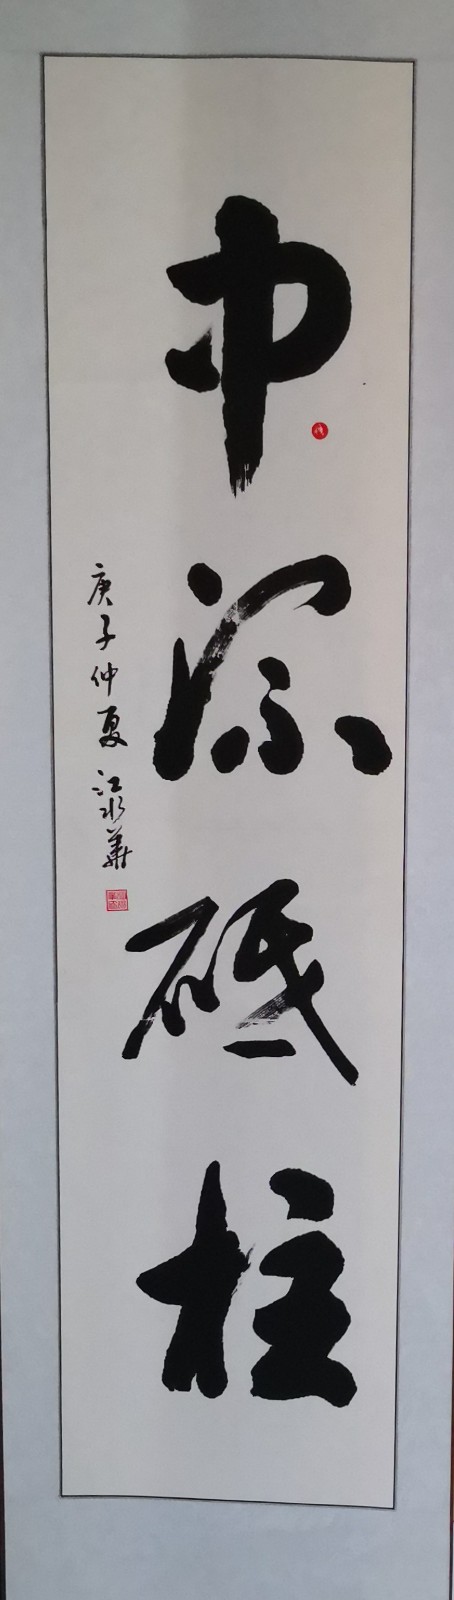 中流砥柱
庚子仲夏 江泳華